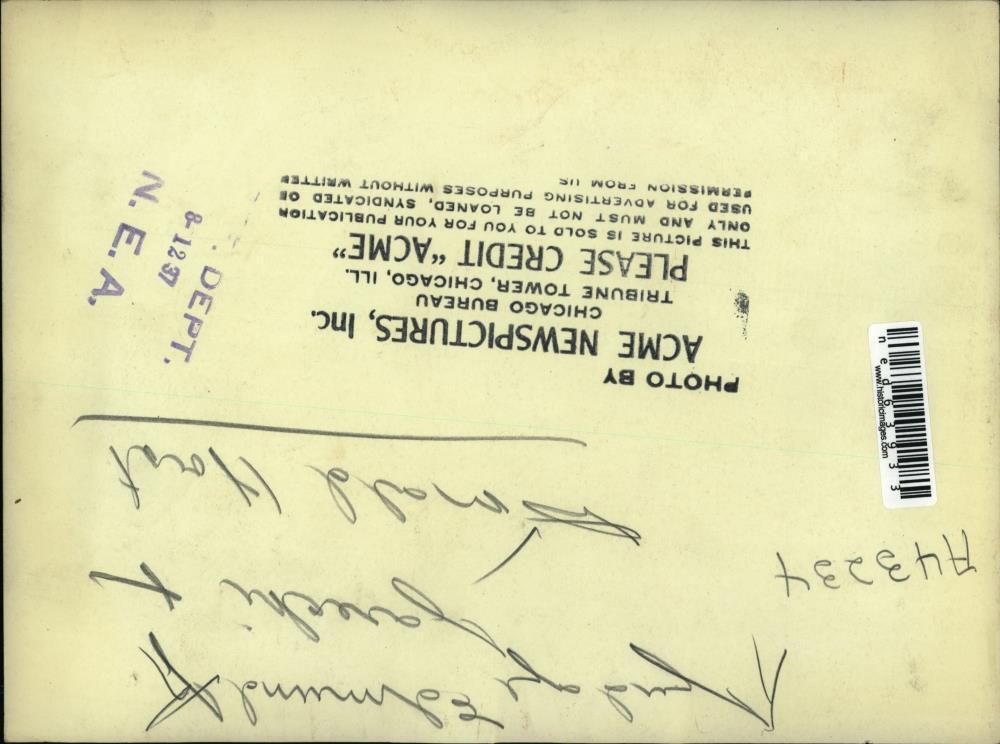 Judge Edmund K
Jarecki +
Ronald Hart
A43234
PHOTO BY
ACME NEWSPICTURES, Inc.
CHICAGO BUREAU
TRIBUNE TOWER, CHICAGO, ILL.
PLEASE CREDIT "ACME"
THIS PICTURE IS SOLD TO YOU FOR YOUR PUBLICATION
ONLY AND MUST NOT BE LOANED, SYNDICATED OR
USED FOR ADVERTISING PURPOSES WITHOUT WRITTEN
PERMISSION FROM US
DEPT.
8-12 37
N. E. A.
ned63933
www.historicimages.com